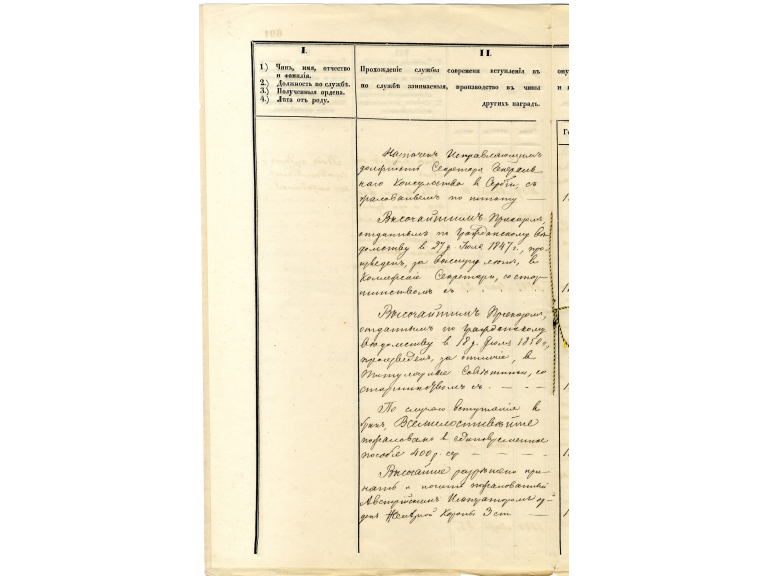 I.
II.
1.) Чинъ, имя, отчество
и фамилія.
2.) Должность по службѣ.
3.) Полученныя ордена.
4.) Лѣта отъ роду.
Прохожденіе службы современи вступленія въ
по службѣ занимаемыя, производство въ чины
другихъ наградъ.
ону
и
Назначенъ Исправляющимъ
должность Секретаря Генераль
наго Консульства в Сербіи, съ
жалованьемъ по штату —
Высочайшимъ Приказомъ,
отданнымъ по Гражданскому Вѣ
домству в 27 д. Іюля 1847 г., про
изведенъ, за выслугу лѣтъ, в
Секретари, со стар
шинствомъ съ
Высочайшимъ Приказомъ,
отданнымъ по Гражданскому
Вѣдомству в 18 д. 1850 г.,
произведенъ, за отличіе, в
Титулярные Совѣтники, со
старшинствомъ съ
По случаю вступленія в
бракъ, Всемилостивѣйше
пожаловано в единовременное
пособіе 400 р. —
Высочайше разрѣшено при
нять и носить пожалованный
Австрійскимъ Императоромъ ор
денъ Желѣзной Короны 3 ст. —